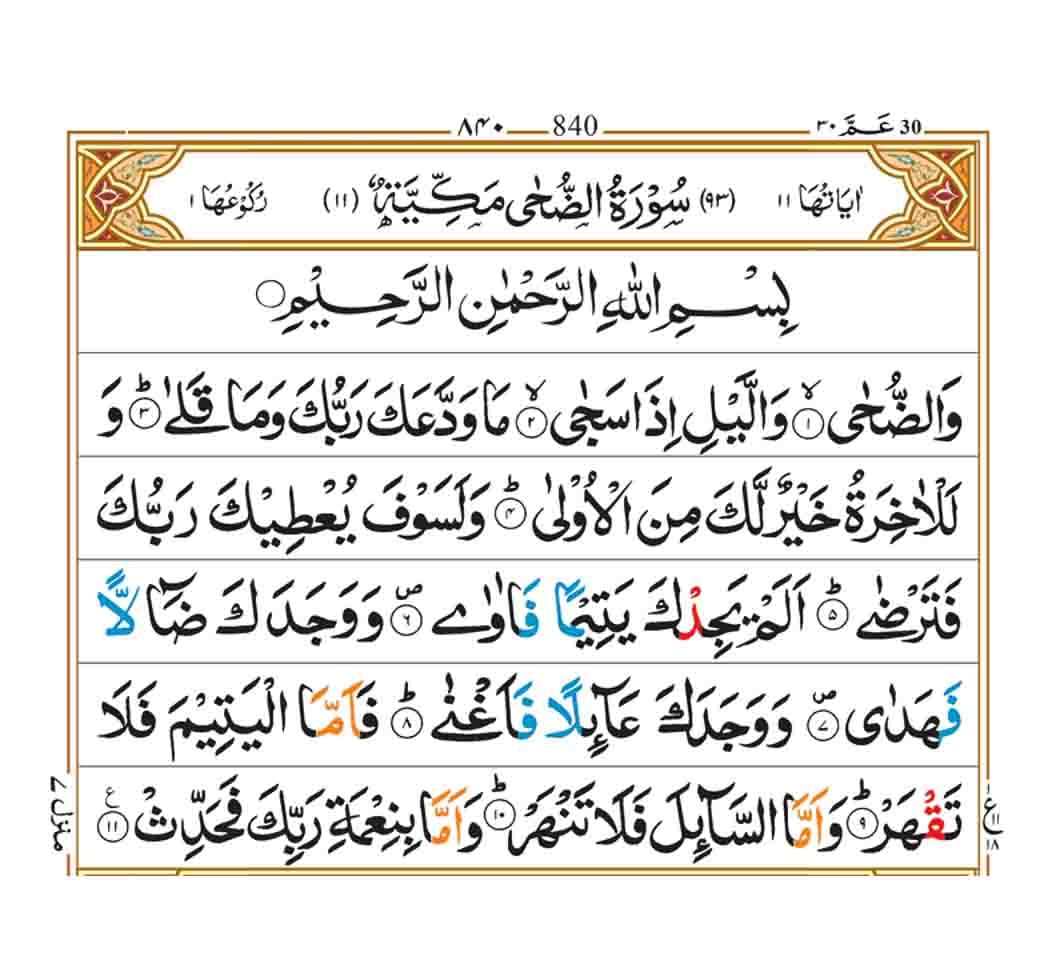 ۸۴۰ 840 30 عَمَّ ۳۰
اٰيَاتُهَا ۱۱ (۹۳) سُوْرَةُ الضُّحٰى مَكِّيَّةٌ (۱۱) رُكُوْعُهَا ۱
بِسْمِ اللّٰهِ الرَّحْمٰنِ الرَّحِيْمِ
وَالضُّحٰى ۙ﴿۱﴾ وَالَّيْلِ اِذَا سَجٰى ۙ﴿۲﴾ مَا وَدَّعَكَ رَبُّكَ وَمَا قَلٰى ؕ﴿۳﴾ وَ
لَلْاٰخِرَةُ خَيْرٌ لَّكَ مِنَ الْاُوْلٰى ؕ﴿۴﴾ وَلَسَوْفَ يُعْطِيْكَ رَبُّكَ
فَتَرْضٰى ؕ﴿۵﴾ اَلَمْ يَجِدْكَ يَتِيْمًا فَاٰوٰى ۪﴿۶﴾ وَوَجَدَكَ ضَآلًّا
فَهَدٰى ۪﴿۷﴾ وَوَجَدَكَ عَآئِلًا فَاَغْنٰى ؕ﴿۸﴾ فَاَمَّا الْيَتِيْمَ فَلَا
تَقْهَرْ ؕ﴿۹﴾ وَاَمَّا السَّآئِلَ فَلَا تَنْهَرْ ؕ﴿۱۰﴾ وَاَمَّا بِنِعْمَةِ رَبِّكَ فَحَدِّثْ ﴿۱۱﴾ ع
منزل ۷
ع ۱۱ ۱۸